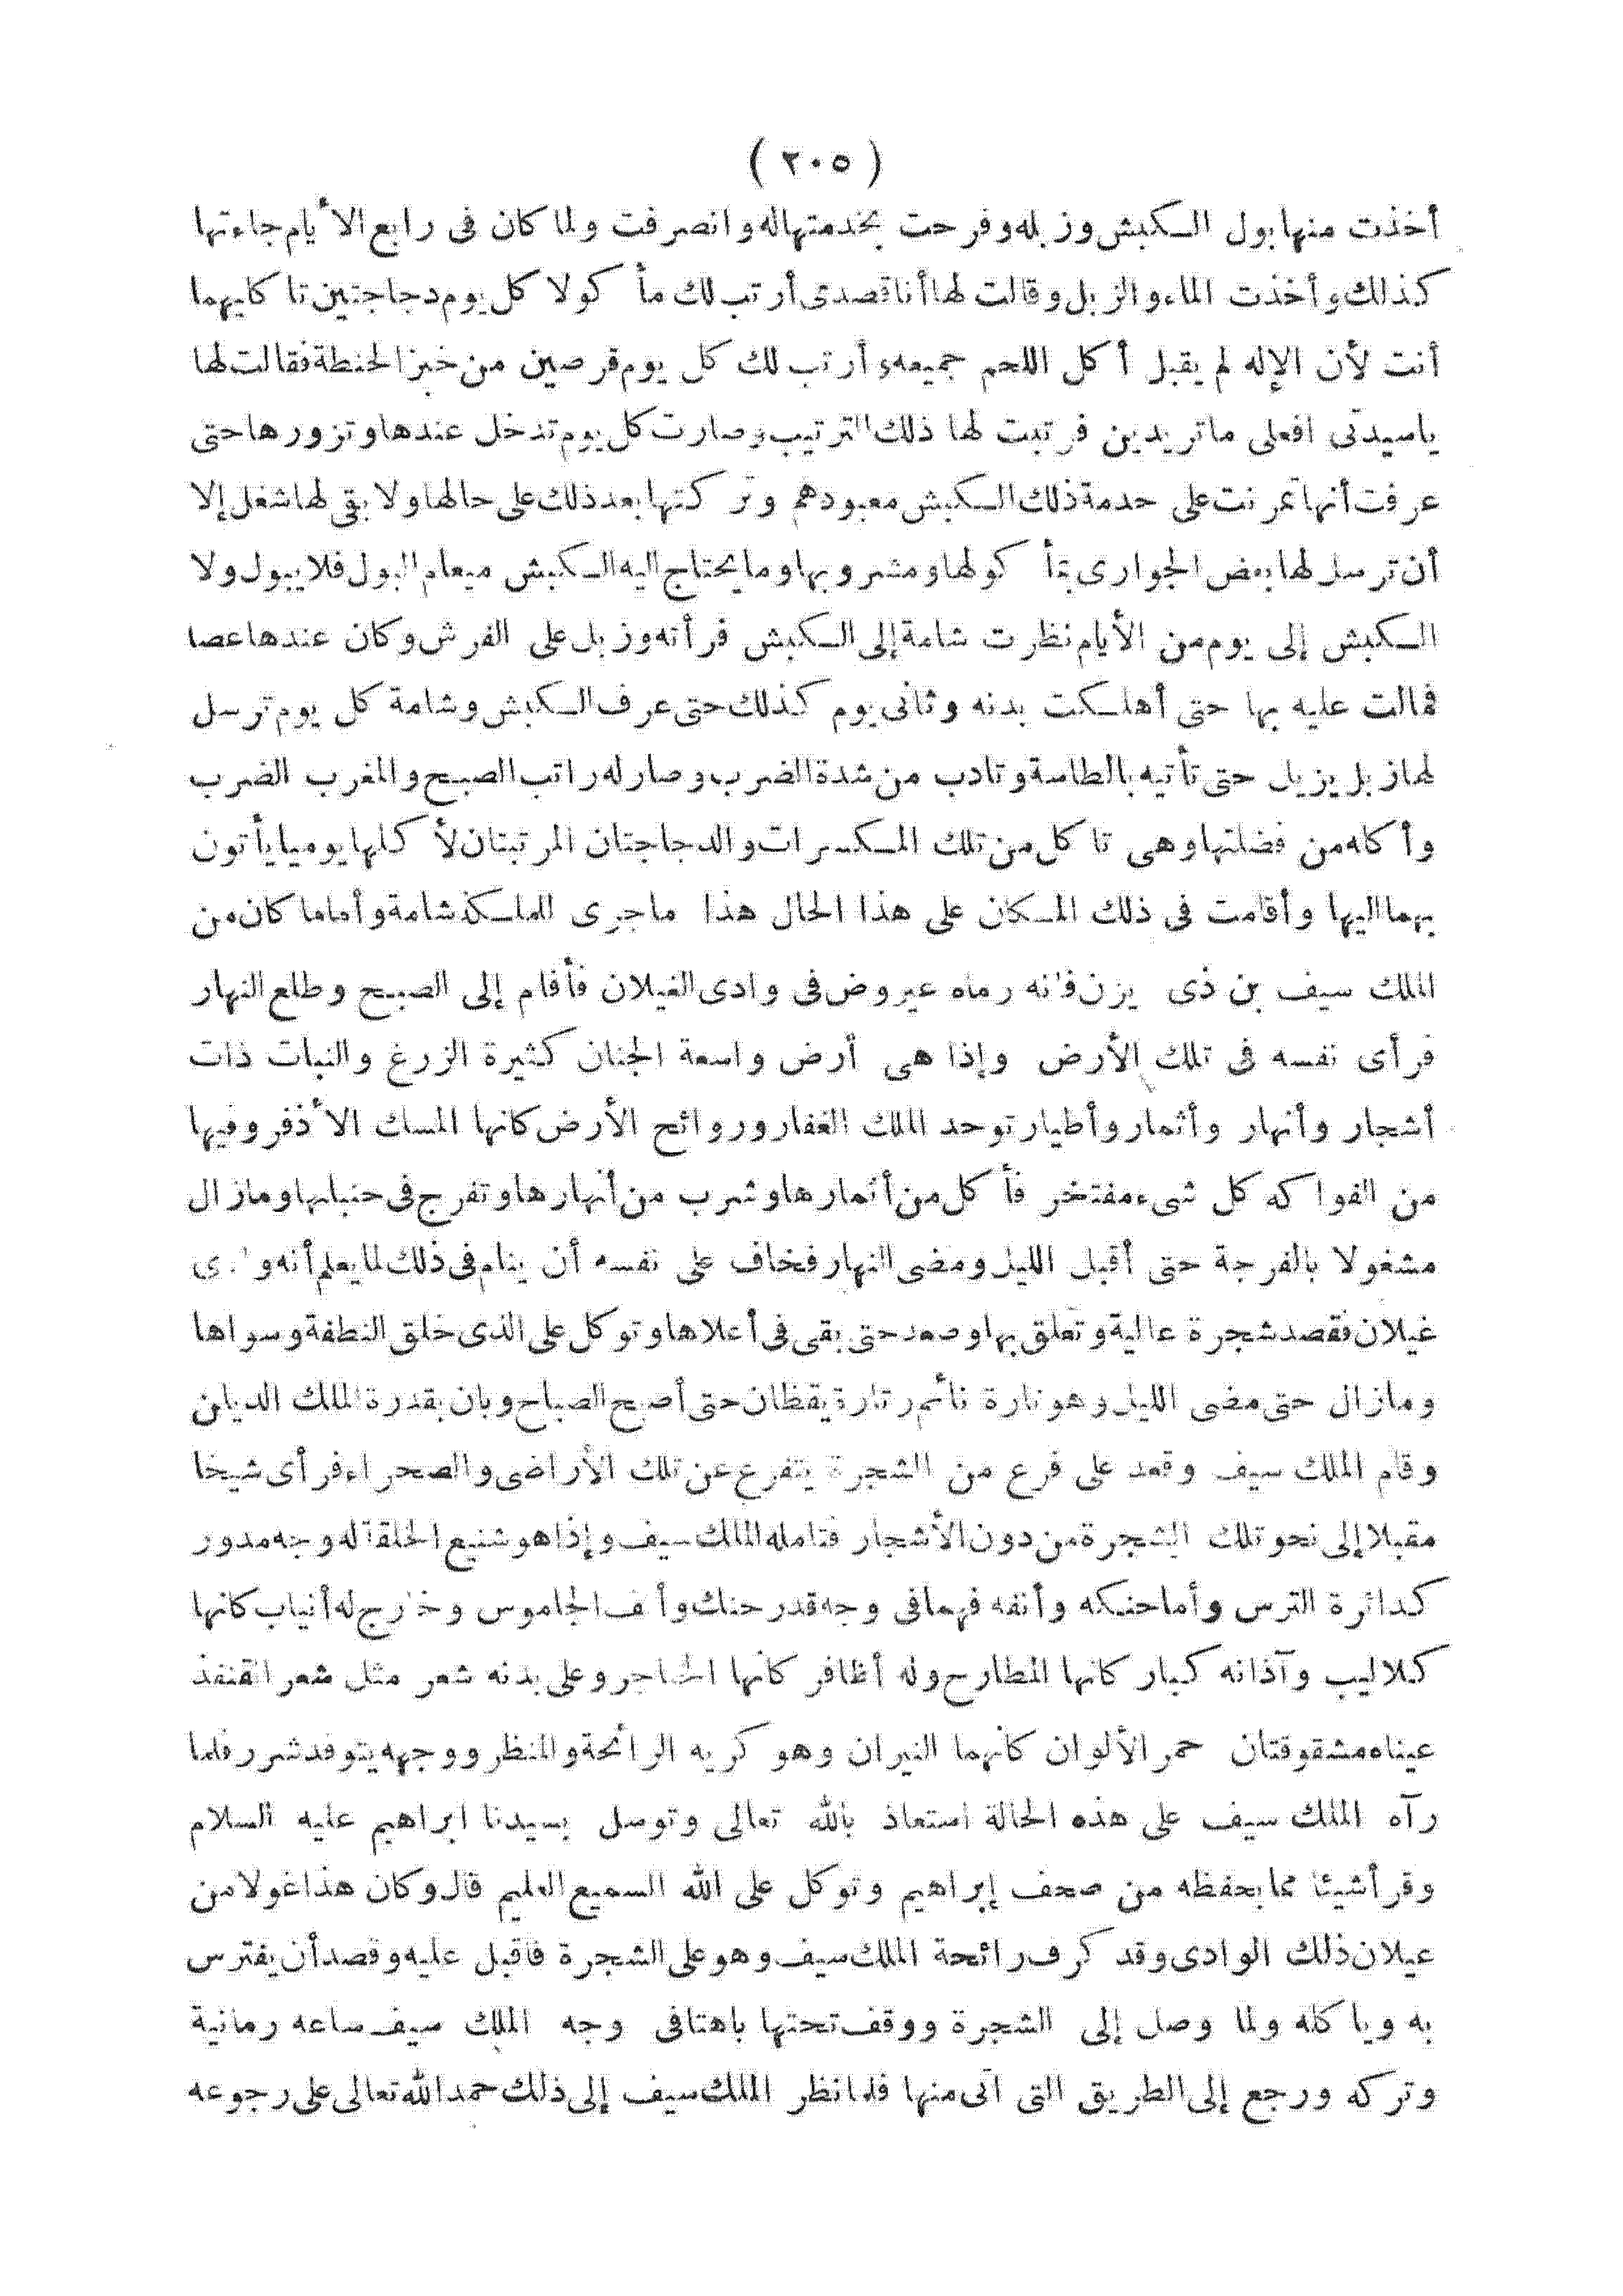 ( ٢٠٥ )
أخذت منها بول الكبش وزبله وفرحت بخدمتها له وانصرفت ولما كان فى رابع الأيام جاءتها
كذلك وأخذت الماء والزبل وقالت لها أنا قصدى أرتب لك مأ كولا كل يوم دجاجتين تاكليهما
أنت لأن الإله لم يقبل أكل اللحم جميعه وأرتب لك كل يوم قرصين من خبز الحنطة فقالت لها
ياسيدتى افعلى ماتريدين فرتبت لها ذلك الترتيب وصارت كل يوم تدخل عندها وتزورها حتى
عرفت أنها تمرنت على حدمة ذلك الكبش معبودهم وتركتها بعد ذلك على حالها ولا بقى لها شغل إلا
أن ترسل لها بعض الجوارى بمأ كولها ومشروبها وما يحتاج اليه الكبش ميعام البول فلا يبول ولا
الكبش إلى يوم من الأيام نظرت شامة إلى الكبش فرأته وزبل على الفرش وكان عندها عصا
فمالت عليه بها حتى أهلكت بدنه وثانى يوم كذلك حتى عرف الكبش وشامة كل يوم ترسل
لها زبل يزيل حتى تأتيه بالطاسة وتادب من شدة الضرب وصار له راتب الصبح والمغرب الضرب
وأكله من فضلتها وهى تاكل من تلك المكسرات والدجاجتان المرتبتان لأكلها يوميا يأتون
بهما اليها وأقامت فى ذلك المكان على هذا الحال هذا ماجرى للملكة شامة وأما ما كان من
الملك سيف بن ذى يزن فانه رماه عيروض فى وادى الغيلان فأقام إلى الصبح وطلع النهار
فرأى نفسه فى تلك الأرض وإذا هى أرض واسعة الجنان كثيرة الزرغ والنبات ذات
أشجار وأنهار وأثمار وأطيار توحد الملك الغفار وروائح الأرض كانها المسك الأذفر وفيها
من الفواكه كل شىء مفتخر فأكل من أثمارها وشرب من أنهارها وتفرج فى جنباتها ومازال
مشغولا بالفرجة حتى أقبل الليل ومضى النهار فخاف على نفسه أن ينام فى ذلك لما يعلم أنه وادى
غيلان فقصد شجرة عالية وتعلق بها وصعد حتى بقى فى أعلاها وتوكل على الذى خلق النطفة وسواها
ومازال حتى مضى الليل وهو تارة نائم وتارة يقظان حتى أصبح الصباح وبان بقدرة الملك الديان
وقام الملك سيف وقعد على فرع من الشجرة يتفرع عن تلك الأراضى والصحراء فرأى شيخا
مقبلا إلى نحو تلك الشجرة من دون الأشجار فتامله الملك سيف وإذا هو شنيع الخلقة له وجه مدور
كدائرة الترس وأما حنكه وأنفه فهما فى وجه قدر حنك وأنف الجاموس وخارج له أنياب كانها
كلاليب وآذانه كبار كانها المطارح وله أظافر كانها الخناجر وعلى بدنه شعر مثل شعر القنفذ
عيناه مشقوقتان حمر الألوان كانهما النيران وهو كريه الرائحة والمنظر ووجهه يتوقد شرر فلما
رآه الملك سيف على هذه الحالة استعاذ بالله تعالى وتوصل بسيدنا ابراهيم عليه السلام
وقرأ شيئا مما يحفظه من صحف إبراهيم وتوكل على الله السميع العليم قال وكان هذا غولا من
عيلان ذلك الوادى وقد كرف رائحة الملك سيف وهو على الشجرة فاقبل عليه وقصد أن يفترس
به وياكله ولما وصل إلى الشجرة ووقف تحتها باهتا فى وجه الملك سيف ساعه رمانية
وتركه ورجع إلى الطريق التى اتى منها فلما نظر الملك سيف إلى ذلك حمد الله تعالى على رجوعه